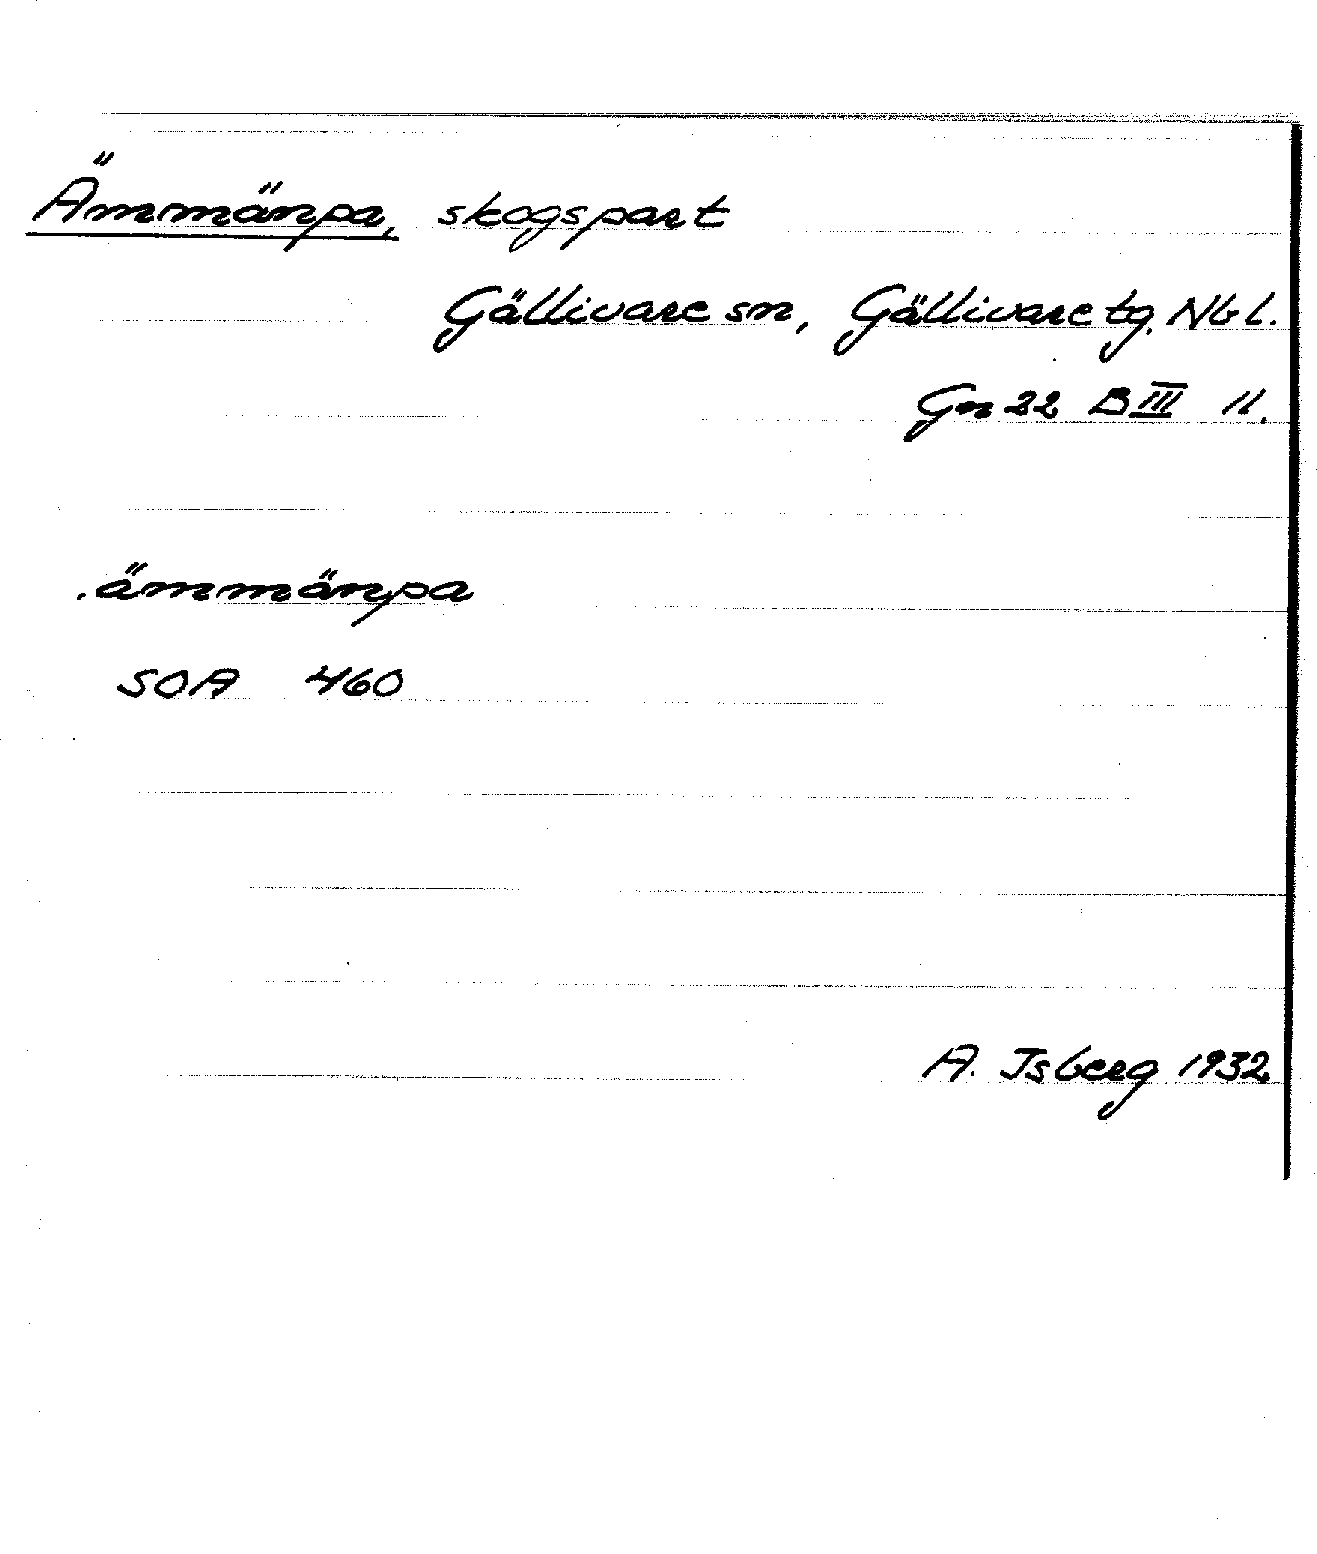 Ämmänpa, skogspart
Gällivare sn, Gällivare tg. Nb l.
Gn 22 B III 11.
.ämmänpa
SOA 460
A. Isberg 1932